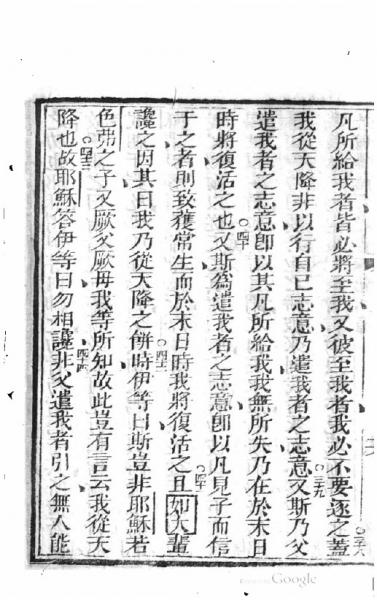 凡所給我者皆必將至我又彼至我者我必不要逐之蓋
三八
我從天降非以行自己志意乃遣我者之志意
三九
又斯乃父
遣我者之志意卽以其凡所給我我無所失乃在於末日
時將復活之也
四十
又斯爲遣我者之志意卽以凡見子而信
于之者則致獲常生而於末日時我將復活之且
四一
如大輩
讒之因其曰我乃從天降之餅
四二
時伊等曰斯豈非耶穌若
色弗之子又厥父厥母我等所知故此豈有言云我從天
降也
四三
故耶穌答伊等曰勿相讒
四四
非父遣我者引之無人能
Google